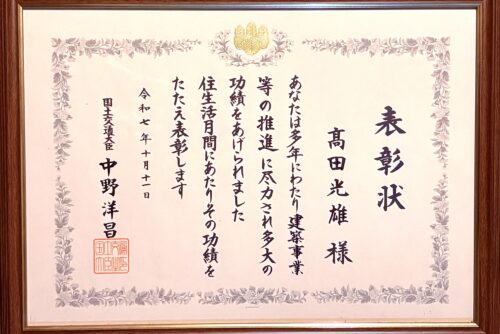 表彰状
髙田光雄 様
あなたは多年にわたり建築事業
等の推進に尽力され多大の
功績をあげられました
住生活月間にあたりその功績を
たたえ表彰します
令和七年十月十一日
国土交通大臣 中野洋昌